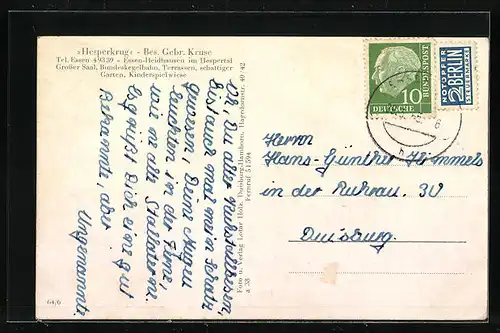 »Hesperkrug« - Bes. Gebr. Kruse
Tel. Essen 49339 - Essen-Heidhausen im Hespertal
Großer Saal, Bundeskegelbahn, Terrassen, schattiger
Garten, Kinderspielwiese
Oh, Du alter
bist auch mal mein
gewesen, Deine Augen
leuchten in der Ferne,
wie
Es grüßt Dich eine gut
Bekannte, aber
Ungenannte.
64/6
Foto u. Verlag Lothar Höfs, Duisburg-Hamborn, Hagedornstr. 40/42
Fernruf 51594
a 58
10
DEUTSCHE
BUNDESPOST
NOTOPFER
2 BERLIN
STEUERMARKE
Herrn
Hans-Günther Himmels
in der Ruhrau. 30
Duisburg.